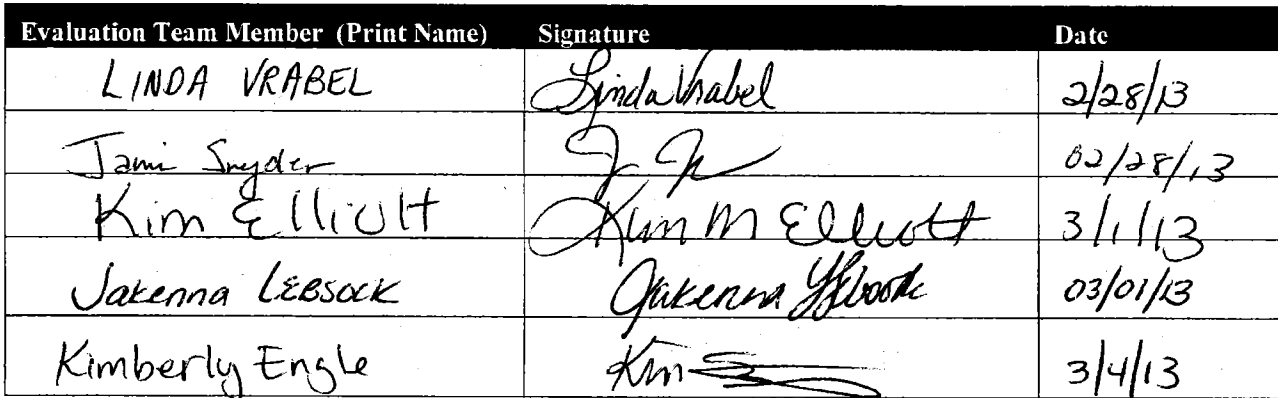 Evaluation Team Member (Print Name) Signature Date
LINDA VRABEL Linda Vrabel 2/28/13
Jami Snyder 02/28/13
Kim Elliott Kim M Elliott 3/1/13
Jakenna LEBSOCK Jakenna Lebsock 03/01/13
Kimberly Engle Kim 3/4/13